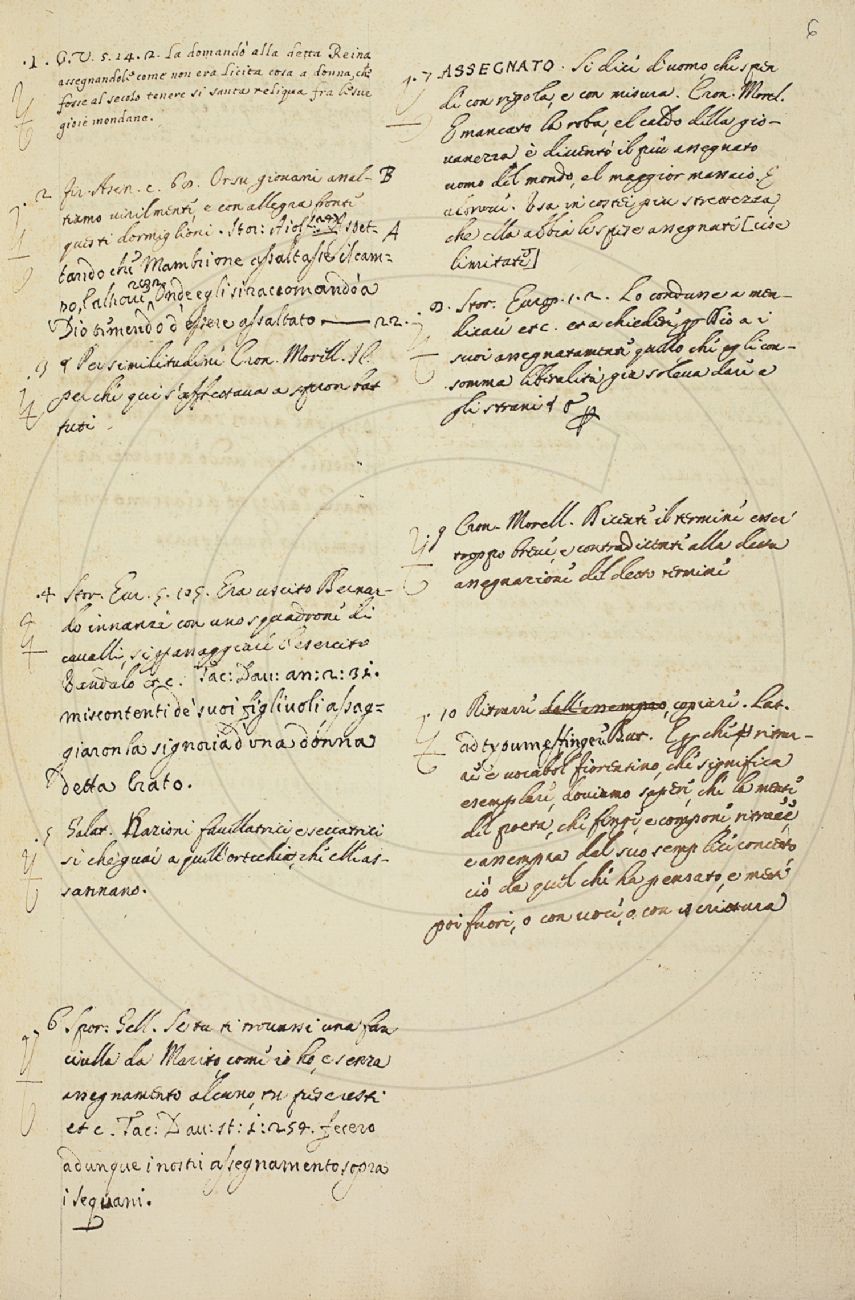 6
.1. G.V. 5.14.2. La domandò alla detta Reina
assegnandole come non era licita cosa a donna, che
fosse al secolo tenere sì santa reliqua fra le sue
gioie mondane.
2 fir. Asen. c. 69. Orsù giovani assal- B
tiamo virilmente, e con allegra fronte
questi dormiglioni. Stor: Aiolf: aspet- A
tando che Mambrione assaltasse il cam-
po, Onde egli si raccomandò a
Dio timendo d'essere assaltato — 22.
3 Per similitudine Cron. Morell.
perchè qui s'affrettava a
tuti
.4 Stor. Eur. 5. 105. Era uscito Beringe-
do innanzi con uno squadrone di
cavalli, si assaggiare l'esercito
Vandalo etc. Tac: Dav: an: 2: 31.
miscontenti de' suoi figliuoli assag-
giaron la signoria d'una donna
detta Erato.
5 Salat. Razioni favillatrici e seccatrici
si che guai a quell'orecchio, che elle as-
sannano.
6 Spor: Gell. Se tu ti trovassi una fan
ciulla da Marito, come io ho, e senza
assegnamento alcuno, tu
etc. Tac: Dav: st: 1: 257. fecero
adunque i nostri assegnamento sopra
i sequani.
.7 ASSEGNATO. Si dice d'uomo che spen
de con regola, e con misura. Cron. Morel.
E mancato la roba, e'l caldo della gio-
vanezza è diventò il più assegnato
uomo del mondo, e'l maggior massaio. E
altrove. Usa in costei gran strettezza,
che ella abbia le spese assegnate [cioè
limitate]
8. Stor. Europ. 1. 2. Lo condusse a men-
dicare etc. e a chiedere per Dio a i
suoi assegnatamente quello che egli con
somma liberalità già soleva dare a
gli strani
9 Cron. Morell. Dicente il termine esser
troppo breve, e contradicente alla detta
assegnazione del detto termine
10 Ritrarre dall'assempro, copiare. Lat.
ad typum effingere But. E perchè ritra-
re è vocabol fiorentino, che significa
esemplare, doviamo sapere, che la mente
del poeta, che finge, e compone ritrae,
e assempra dal suo semplice concetto
ciò da quel che ha pensato, e mette
poi fuori, o con voce, o con iscrittura